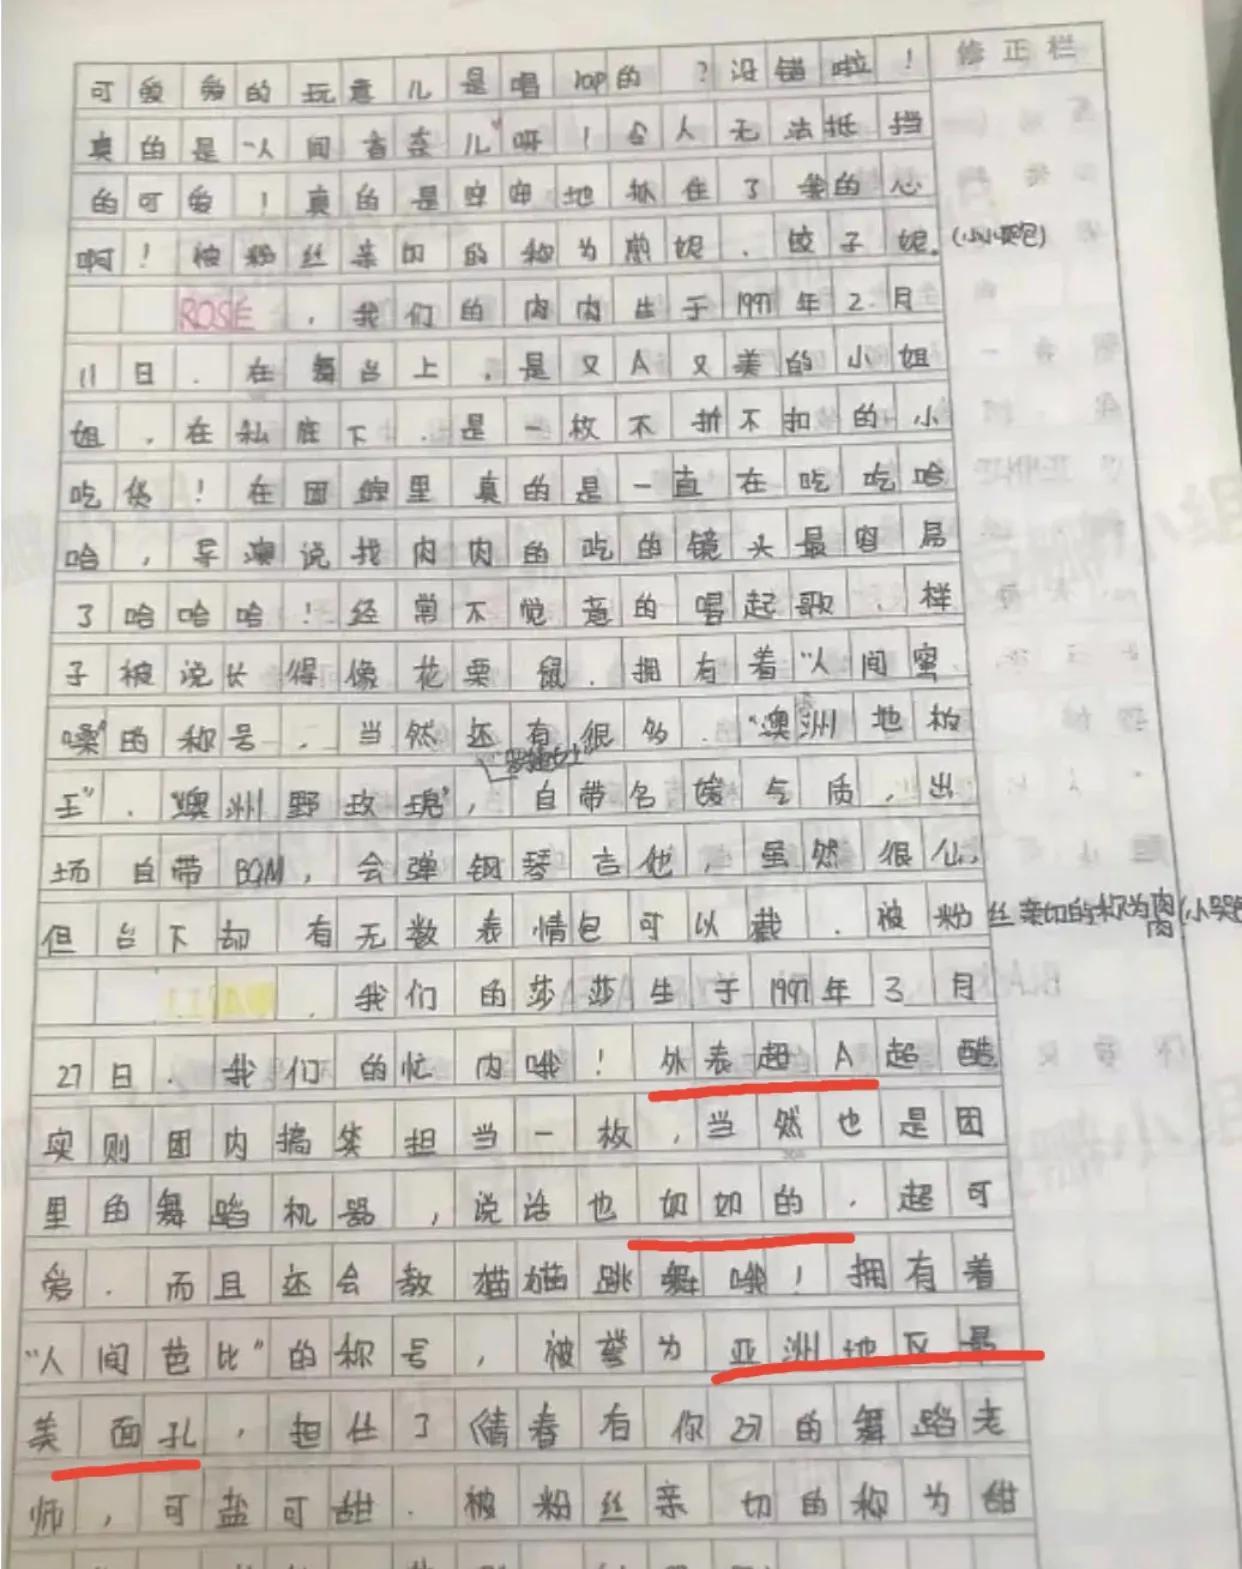 可爱爱的玩意儿是唱rap的？没错啦！
修正栏
真的是“人间香奈儿”呀！令人无法抵挡
的可爱！真的是牢牢地抓住了我的心
啊！被粉丝亲切的称为煎妮、饺子妮。(小小哭包)
ROSÉ，我们的肉肉生于1997年2月
11日．在舞台上，是又A又美的小姐
姐，在私底下．是一枚不折不扣的小
吃货！在团综里真的是一直在吃吃哈
哈，导演说找肉肉的吃的镜头最容易
了哈哈哈！经常不觉意的唱起歌．样
子被说长得像花栗鼠．拥有着“人间蜜
嗓”的称号．当然还有很多．“澳洲地柏
王”．“澳洲野玫瑰”，自带名媛气质，出
场自带BGM，会弹钢琴吉他，虽然很仙，
但台下却有无数表情包可以截．被粉丝亲切的称为肉肉(小哭包
，我们的莎莎生于1997年3月
27日．我们的忙内哦！外表超A超酷
实则团内搞笑担当一枚，当然也是团
里的舞蹈机器，说话也奶奶的．超可
爱．而且还会教猫猫跳舞哦！拥有着
“人间芭比”的称号，被誉为亚洲地区最
美面孔，担任了《青春有你2》的舞蹈老
师，可盐可甜．被粉丝亲切的称为甜